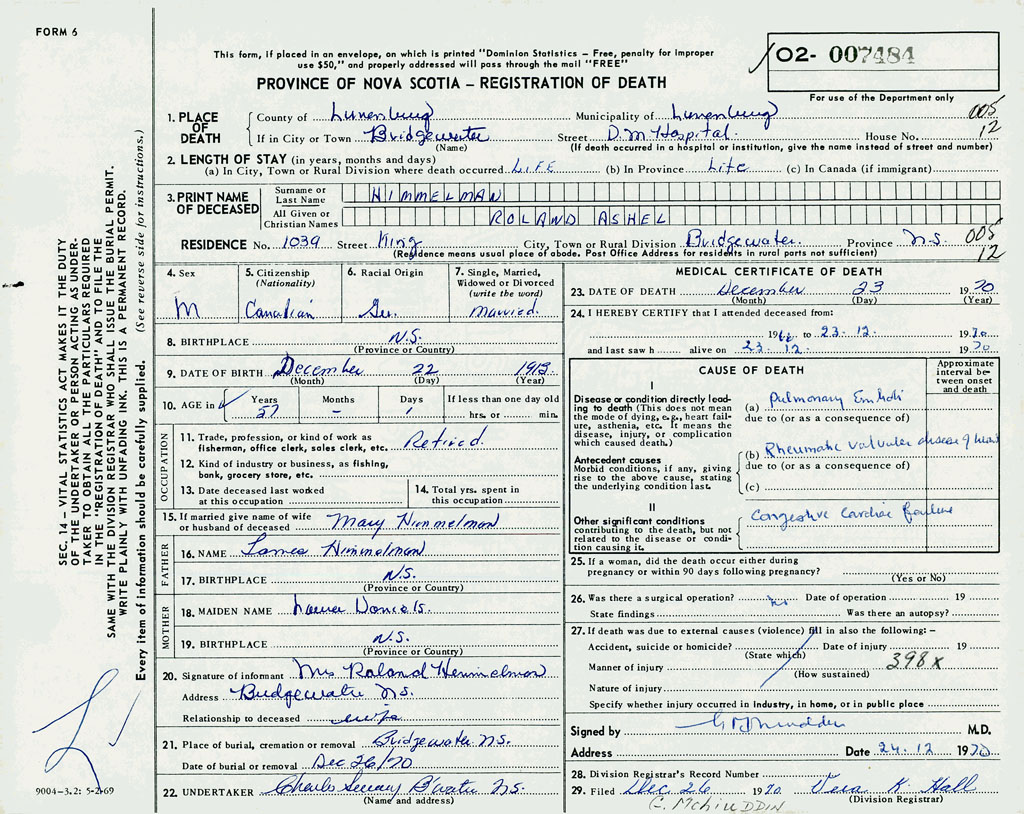 FORM 6
This form, if placed in an envelope, on which is printed "Dominion Statistics – Free, penalty for improper
use $50," and properly addressed will pass through the mail "FREE"
O2- 007484
PROVINCE OF NOVA SCOTIA – REGISTRATION OF DEATH
For use of the Department only
1. PLACE OF DEATH
County of Lunenburg Municipality of Lunenburg 005
If in City or Town Bridgewater Street D.M Hospital. House No. 12
(Name) (If death occurred in a hospital or institution, give the name instead of street and number)
2. LENGTH OF STAY (in years, months and days)
(a) In City, Town or Rural Division where death occurred LIFE (b) In Province Life (c) In Canada (if immigrant)
3. PRINT NAME OF DECEASED
Surname or Last Name HIMMELMAN
All Given or Christian Names ROLAND ASHEL
RESIDENCE No. 1039 Street King City, Town or Rural Division Bridgewater Province N.S. 005
(Residence means usual place of abode. Post Office Address for residents in rural parts not sufficient) 12
4. Sex
M
5. Citizenship
(Nationality)
Canadian
6. Racial Origin
Ger.
7. Single, Married,
Widowed or Divorced
(write the word)
Married.
8. BIRTHPLACE N.S.
(Province or Country)
9. DATE OF BIRTH December 22 1913
(Month) (Day) (Year)
10. AGE in Years Months Days If less than one day old
57 – 1 hrs. or min.
OCCUPATION
11. Trade, profession, or kind of work as
fisherman, office clerk, sales clerk, etc. Retired.
12. Kind of industry or business, as fishing,
bank, grocery store, etc.
13. Date deceased last worked
at this occupation
14. Total yrs. spent in
this occupation
15. If married give name of wife
or husband of deceased Mary Himmelman
FATHER
16. NAME James Himmelman
17. BIRTHPLACE N.S.
(Province or Country)
MOTHER
18. MAIDEN NAME Daniels.
19. BIRTHPLACE N.S.
(Province or Country)
20. Signature of informant Mrs Roland Himmelman
Address Bridgewater N.S.
Relationship to deceased wife
21. Place of burial, cremation or removal Bridgewater N.S.
Date of burial or removal Dec 26/70
22. UNDERTAKER Charles B'water N.S.
(Name and address)
MEDICAL CERTIFICATE OF DEATH
23. DATE OF DEATH December 23 1970
(Month) (Day) (Year)
24. I HEREBY CERTIFY that I attended deceased from:
1966 to 23-12. 1970
and last saw h alive on 23.12. 1970
CAUSE OF DEATH
Approximate
interval be-
tween onset
and death
I
Disease or condition directly lead-
ing to death (This does not mean
the mode of dying, e.g., heart fail-
ure, asthenia, etc. It means the
disease, injury, or complication
which caused death.)
(a) Pulmonary Emboli
due to (or as a consequence of)
Antecedent causes
Morbid conditions, if any, giving
rise to the above cause, stating
the underlying condition last.
(b) Rheumatic valvular disease of heart
due to (or as a consequence of)
(c)
II
Other significant conditions
contributing to the death, but not
related to the disease or condi-
tion causing it.
Congestive Cardiac failure
25. If a woman, did the death occur either during
pregnancy or within 90 days following pregnancy?
(Yes or No)
26. Was there a surgical operation? no Date of operation 19
State findings Was there an autopsy?
27. If death was due to external causes (violence) fill in also the following: –
Accident, suicide or homicide? Date of injury 19
(State which)
Manner of injury 398x
(How sustained)
Nature of injury
Specify whether injury occurred in industry, in home, or in public place
Signed by M.D.
Address Date 24.12 1970
28. Division Registrar's Record Number
29. Filed Dec 26 1970 Vera K. Hall
(Division Registrar)
G. MOHIUDDIN
SEC. 14 – VITAL STATISTICS ACT MAKES IT THE DUTY
OF THE UNDERTAKER OR PERSON ACTING AS UNDER-
TAKER TO OBTAIN ALL THE PARTICULARS REQUIRED
IN THE "REGISTRATION OF DEATH" AND TO FILE THE
SAME WITH THE DIVISION REGISTRAR WHO SHALL ISSUE THE BURIAL PERMIT.
WRITE PLAINLY WITH UNFADING INK. THIS IS A PERMANENT RECORD.
Every item of information should be carefully supplied. (See reverse side for instructions.)
9004-3.2: 5-2-69